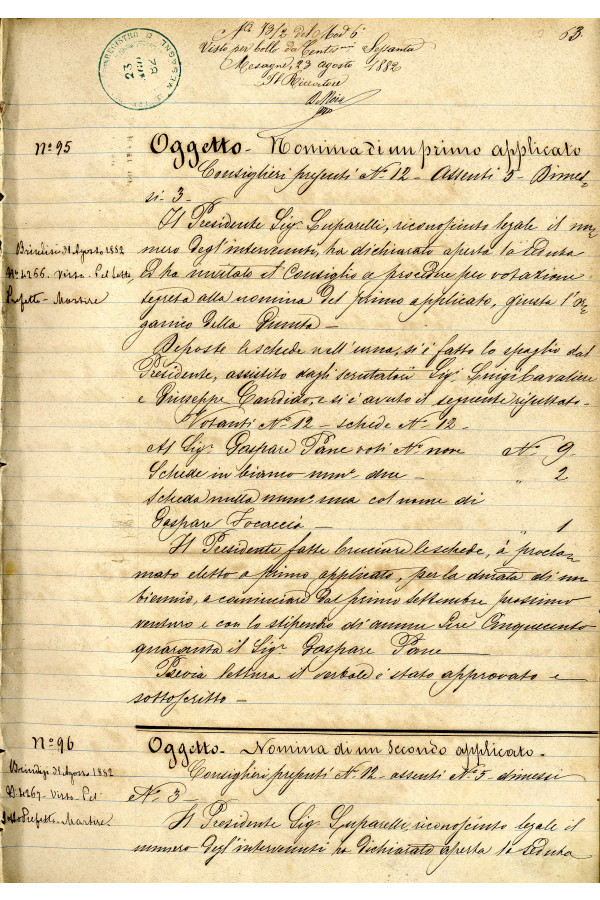 Nº 1312 del Mod 6
63
Visto per bollo da Cent. Sessanta
Mesagne, 23 agosto 1882
Il Ricevitore
REGISTRO
23
82
Nº 95
Oggetto - Nomina di un primo applicato
Consiglieri presenti Nº 12 - Assenti 5 - Dimes-
si 3 -
Il Presidente Sigr Luparelli, riconosciuto legale il nu-
mero degl'intervenuti, ha dichiarato aperta la seduta
ed ha invitato il Consiglio a procedere per votazione
segreta alla nomina del primo applicato, giusta l'or-
ganico della Giunta -
Brindisi 31 Agosto 1882
Nº 4266 - Visto - Pel Sotto
Prefetto - Martire
Deposte le schede nell'urna, si è fatto lo spoglio dal
Presidente, assistito dagli scrutatori Sigr Luigi Cavaliere
e Giuseppe Candido, e si è avuto il seguente risultato -
Votanti Nº 12 - schede Nº 12 -
Al Sigr Gaspare Pane voti Nº nove Nº 9
Schede in bianco numº due - " 2
Scheda nulla numº una col nome di
Gaspare Focaccia - " 1
Il Presidente fatte bruciare le schede, à procla-
mato eletto a primo applicato, per la durata di un
biennio, a cominciare dal primo Settembre prossimo
venturo e con lo stipendio di annue Lire Cinquecento
quaranta il Sigr Gaspare Pane
Previa lettura il verbale è stato approvato e
sottoscritto -
Nº 96
Oggetto - Nomina di un secondo applicato -
Brindisi 31 Agosto 1882
Nº 4267 - Visto - Pel
Sotto Prefetto - Martire
Consiglieri presenti Nº 12 - assenti Nº 5 - dimessi
Nº 3 -
Il Presidente Sigr Luparelli, riconosciuto legale il
numero degl'intervenuti ha dichiarato aperta la seduta